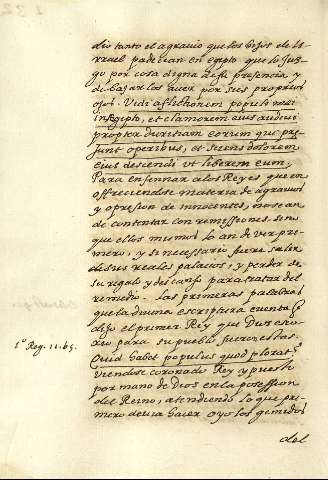 dio tanto el agravio que los hijos de Is-
rrael padecian en egipto que lo juz-
go por cosa digna de su presencia y
de bajar los a ver por sus proprios
ojos. Vidi aflictionem populi mei
in Egipto, et clamorem eius audivi
propter duritiam eorum que pre-
sunt operibus, et sciens dolorem
eius descendi ut liberem eum,
Para ensennar a los Reyes que en
offreciendose materia de agravios
y opresion de innocentes, no se an
de contentar con remissiones sino
que ellos mismos lo an de ver pri-
mero, y si necessario fuere salir
de sus reales palacios, y perder de
su regalo y descanso para tratar del
remedio. las primeras palabras
que la divina escriptura cuenta q̃
dijo el primer Rey que Dios esco-
xio para su pueblo fueron estas.
1º Reg. 11. b 5.
Quid habet populus quod plorat q̃
viendose coronado Rey y puesto
por mano de Dios en la possession
del Reino, atendiendo lo que pri-
mero devia hacer oyo los gemidos
del